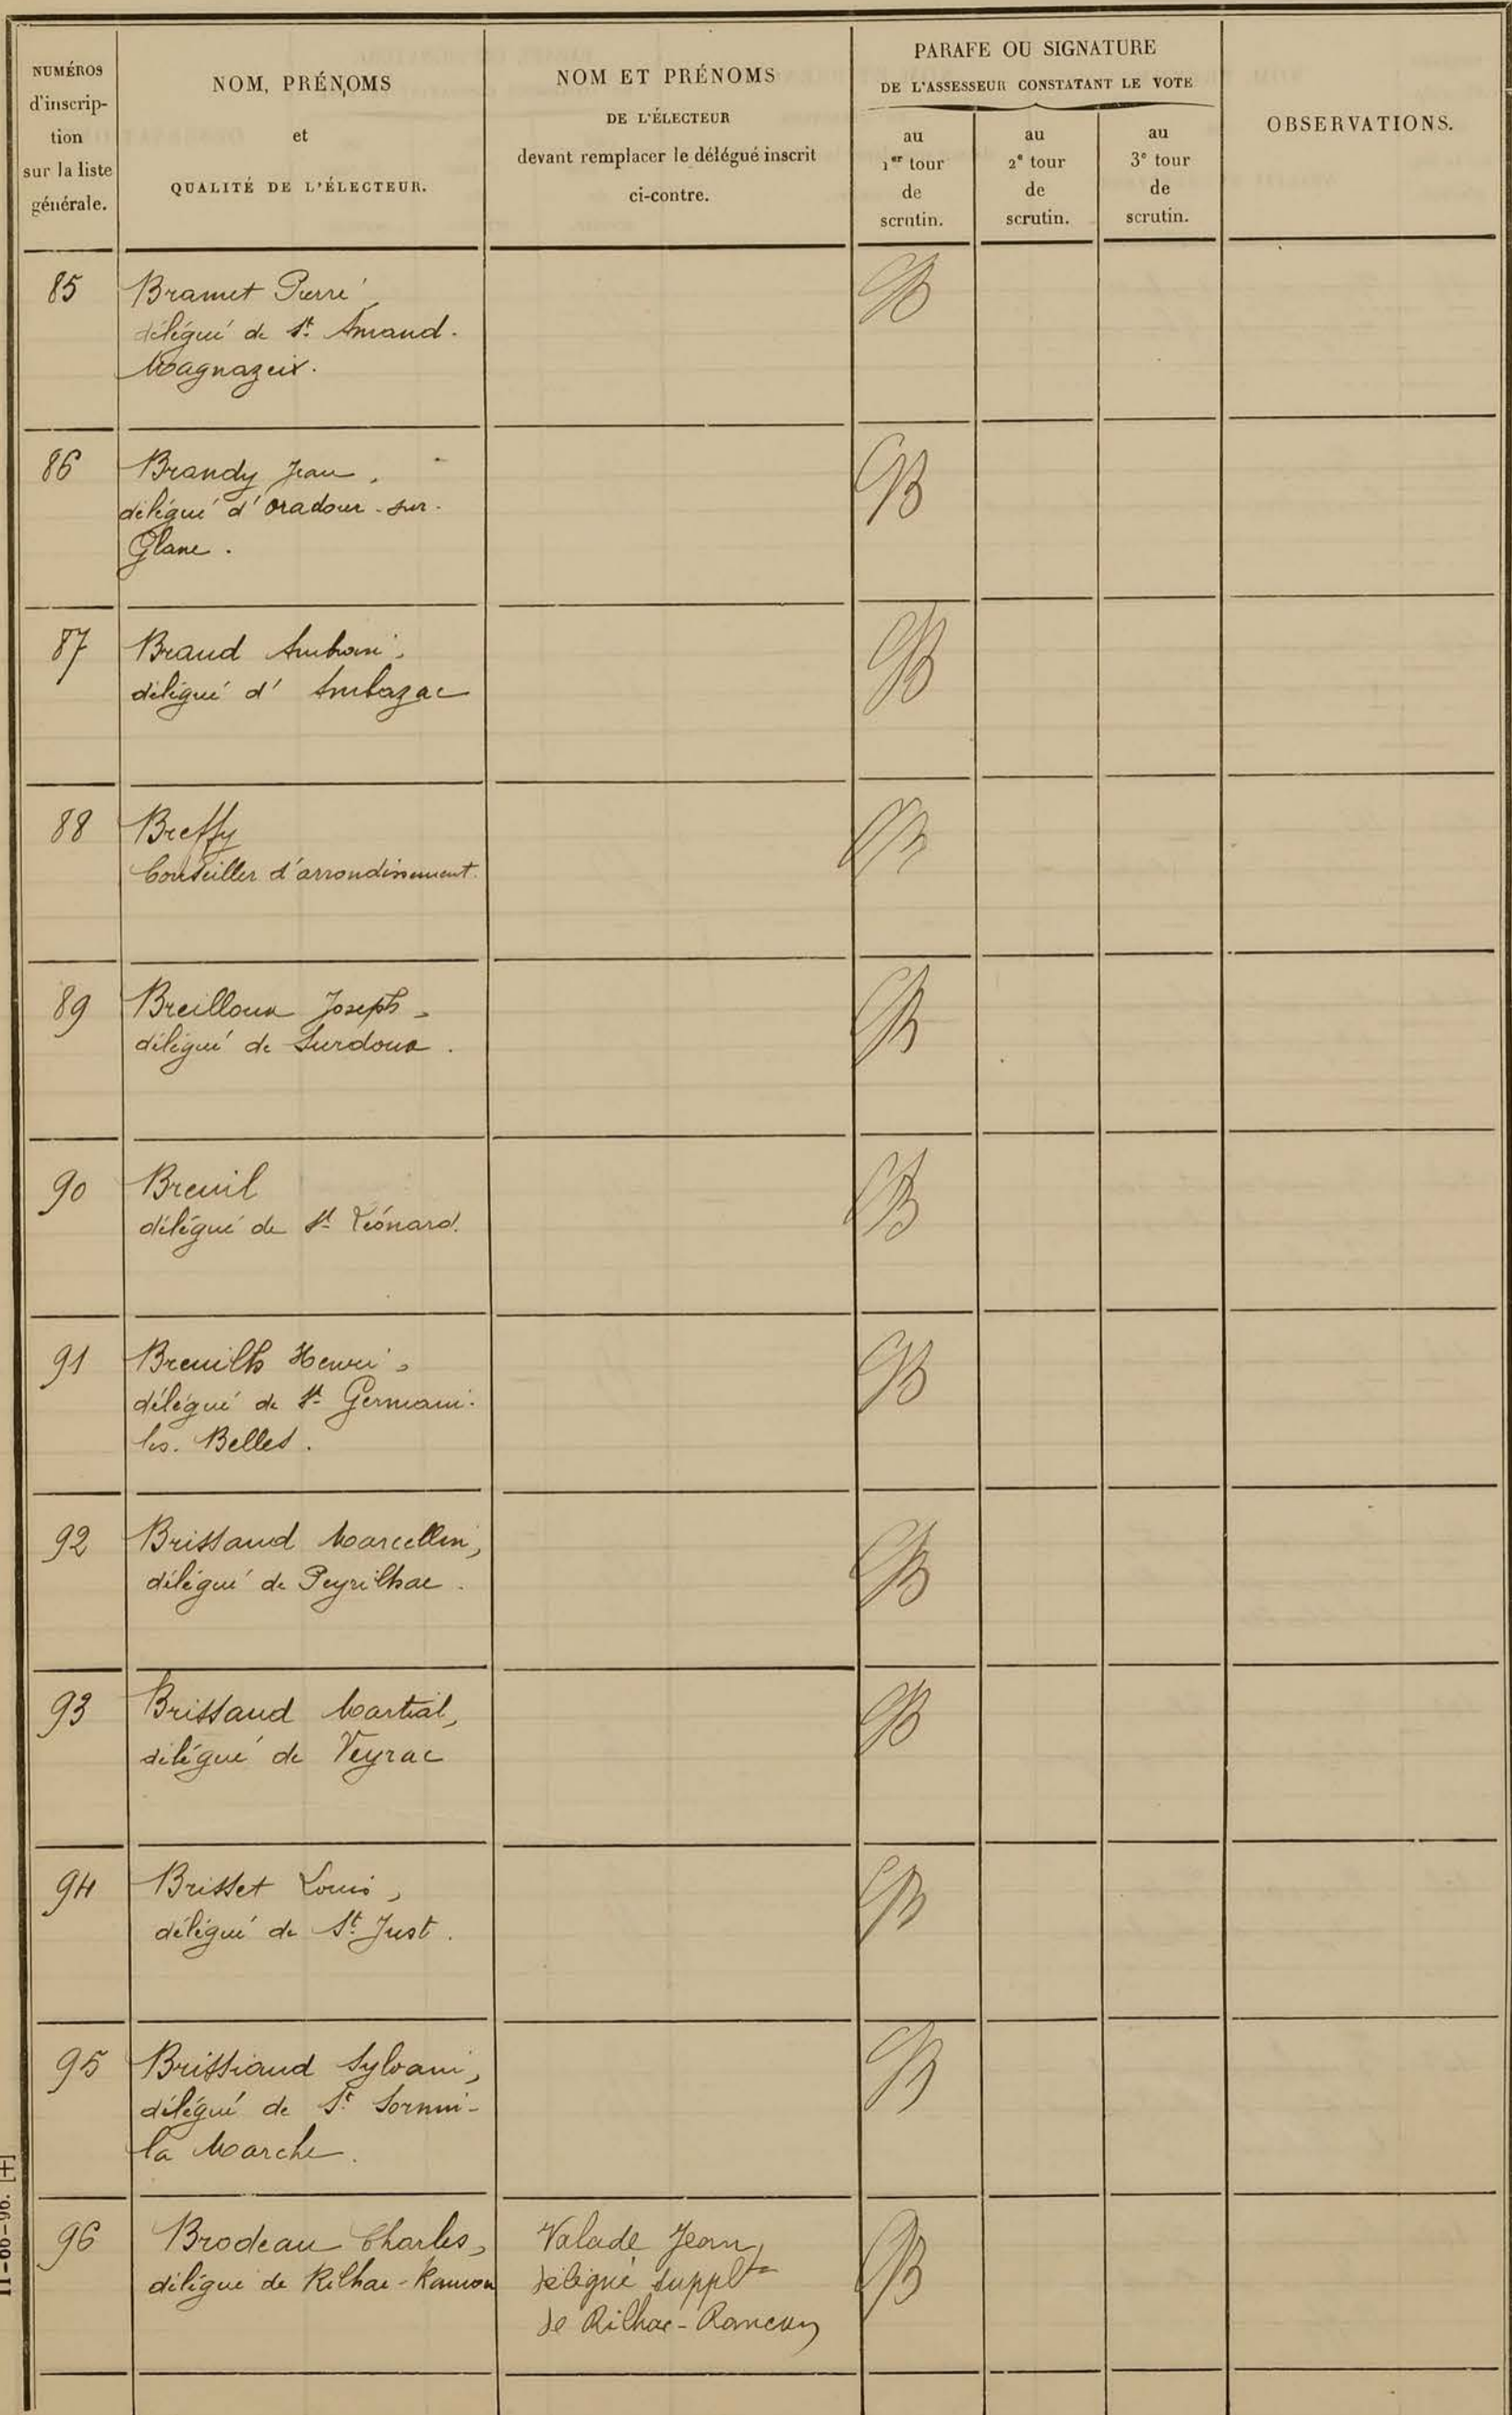 NUMÉROS
d'inscrip-
tion
sur la liste
générale.
NOM, PRÉNOMS
et
QUALITÉ DE L'ÉLECTEUR.
NOM ET PRÉNOMS
DE L'ÉLECTEUR
devant remplacer le délégué inscrit
ci-contre.
PARAFE OU SIGNATURE
DE L'ASSESSEUR CONSTATANT LE VOTE
au
1er tour
de
scrutin.
au
2e tour
de
scrutin.
au
3e tour
de
scrutin.
OBSERVATIONS.
85 Bramet Pierre
délégué de St. Amand-
Magnazeix.
B
86 Brandy Jean,
délégué d'Oradour-sur-
Glane.
B
87 Braud Antoine,
délégué d'Ambazac
B
88 Breffy
Conseiller d'arrondissement.
B
89 Breilloux Joseph,
délégué de Surdoux.
B
90 Breuil
délégué de St Léonard.
B
91 Breuilh Henri,
délégué de St Germain-
les-Belles.
B
92 Brissaud Marcellin,
délégué de Peyrilhac.
B
93 Brissaud Martial,
délégué de Veyrac
B
94 Brisset Louis,
délégué de St. Just.
B
95 Brissiaud Sylvain,
délégué de St. Sornin-
la Marche.
B
96 Brodeau Charles,
délégué de Rilhac-Rancon
Valade Jean,
délégué supplt
de Rilhac-Rancon
B
11-00-96. [+]